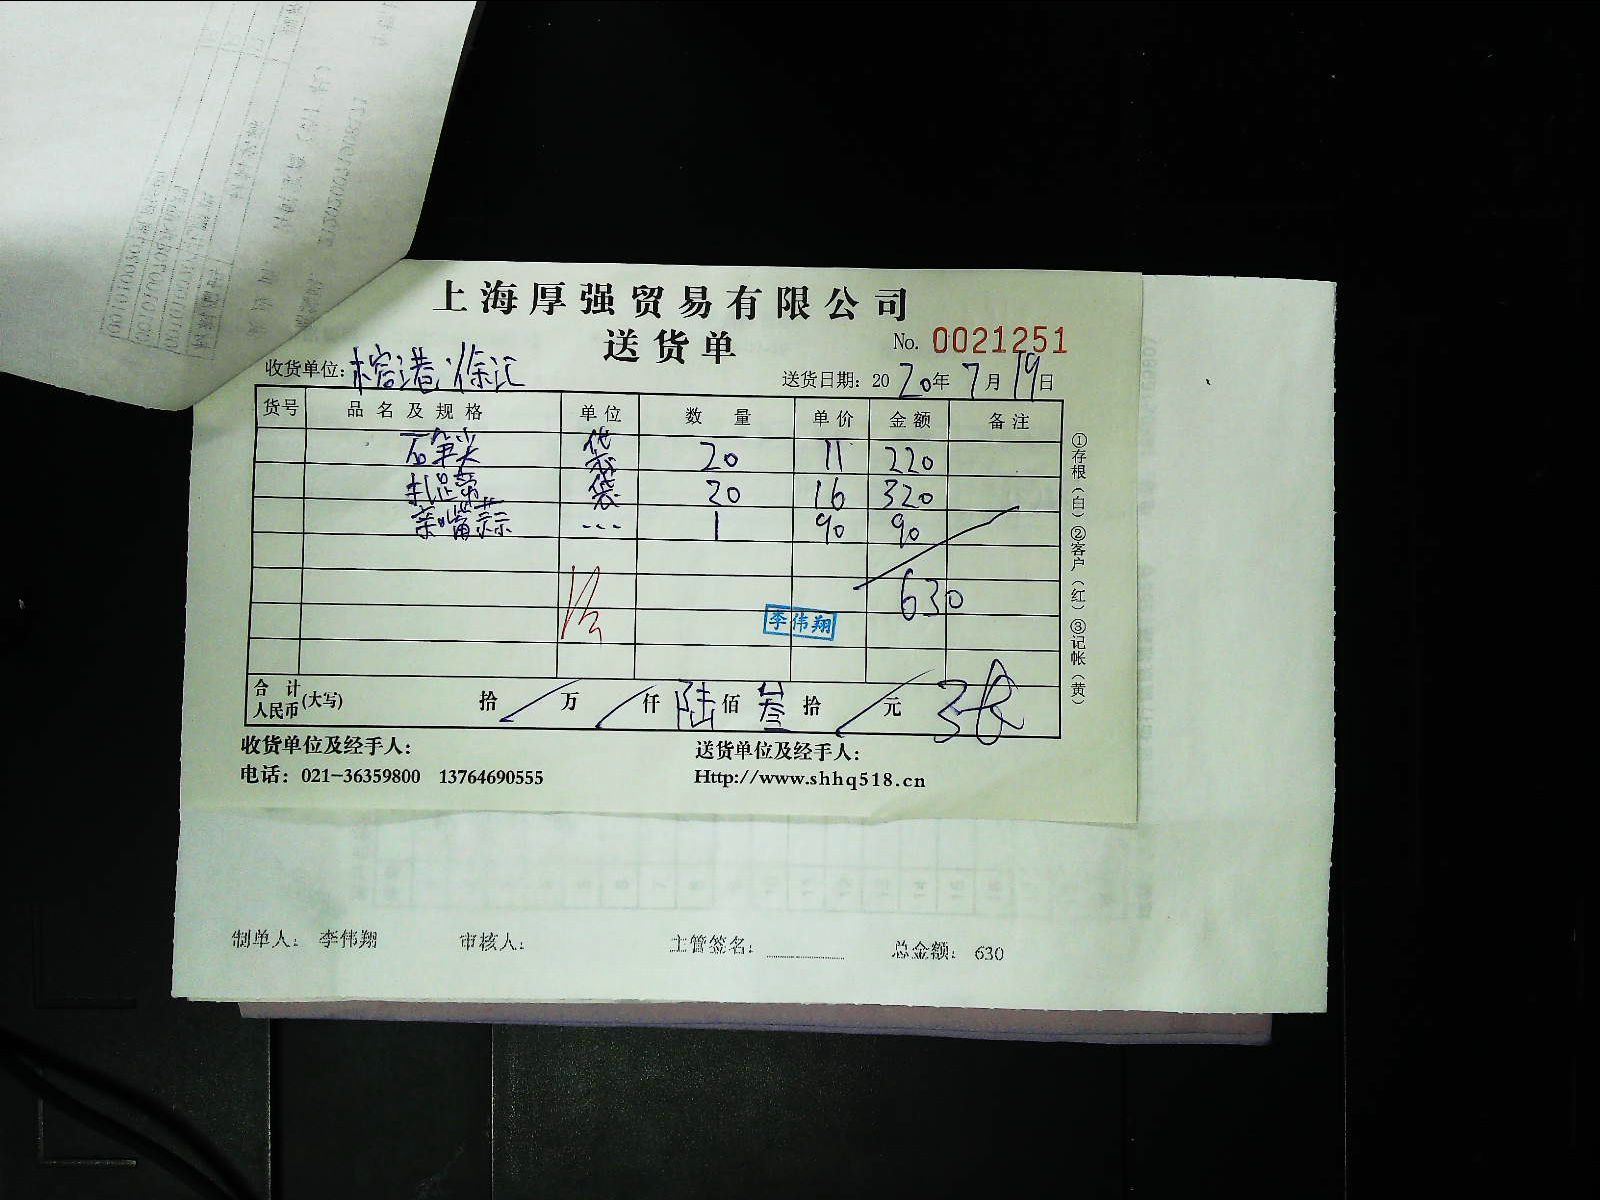 上海厚强贸易有限公司
送货单
No. 0021251
收货单位：榕港徐汇
送货日期：2020年7月19日
货号 品名及规格 单位 数量 单价 金额 备注
石笋尖 袋 20 11 220
扎蹄 袋 20 16 320
1 90 90
630
李伟翔
合计人民币(大写) 拾/万/仟陆佰叁拾/元
收货单位及经手人：
送货单位及经手人：
电话：021-36359800 13764690555
Http://www.shhq518.cn
①存根（白）②客户（红）③记帐（黄）
制单人： 李伟翔 审核人： 主管签名： 总金额： 630